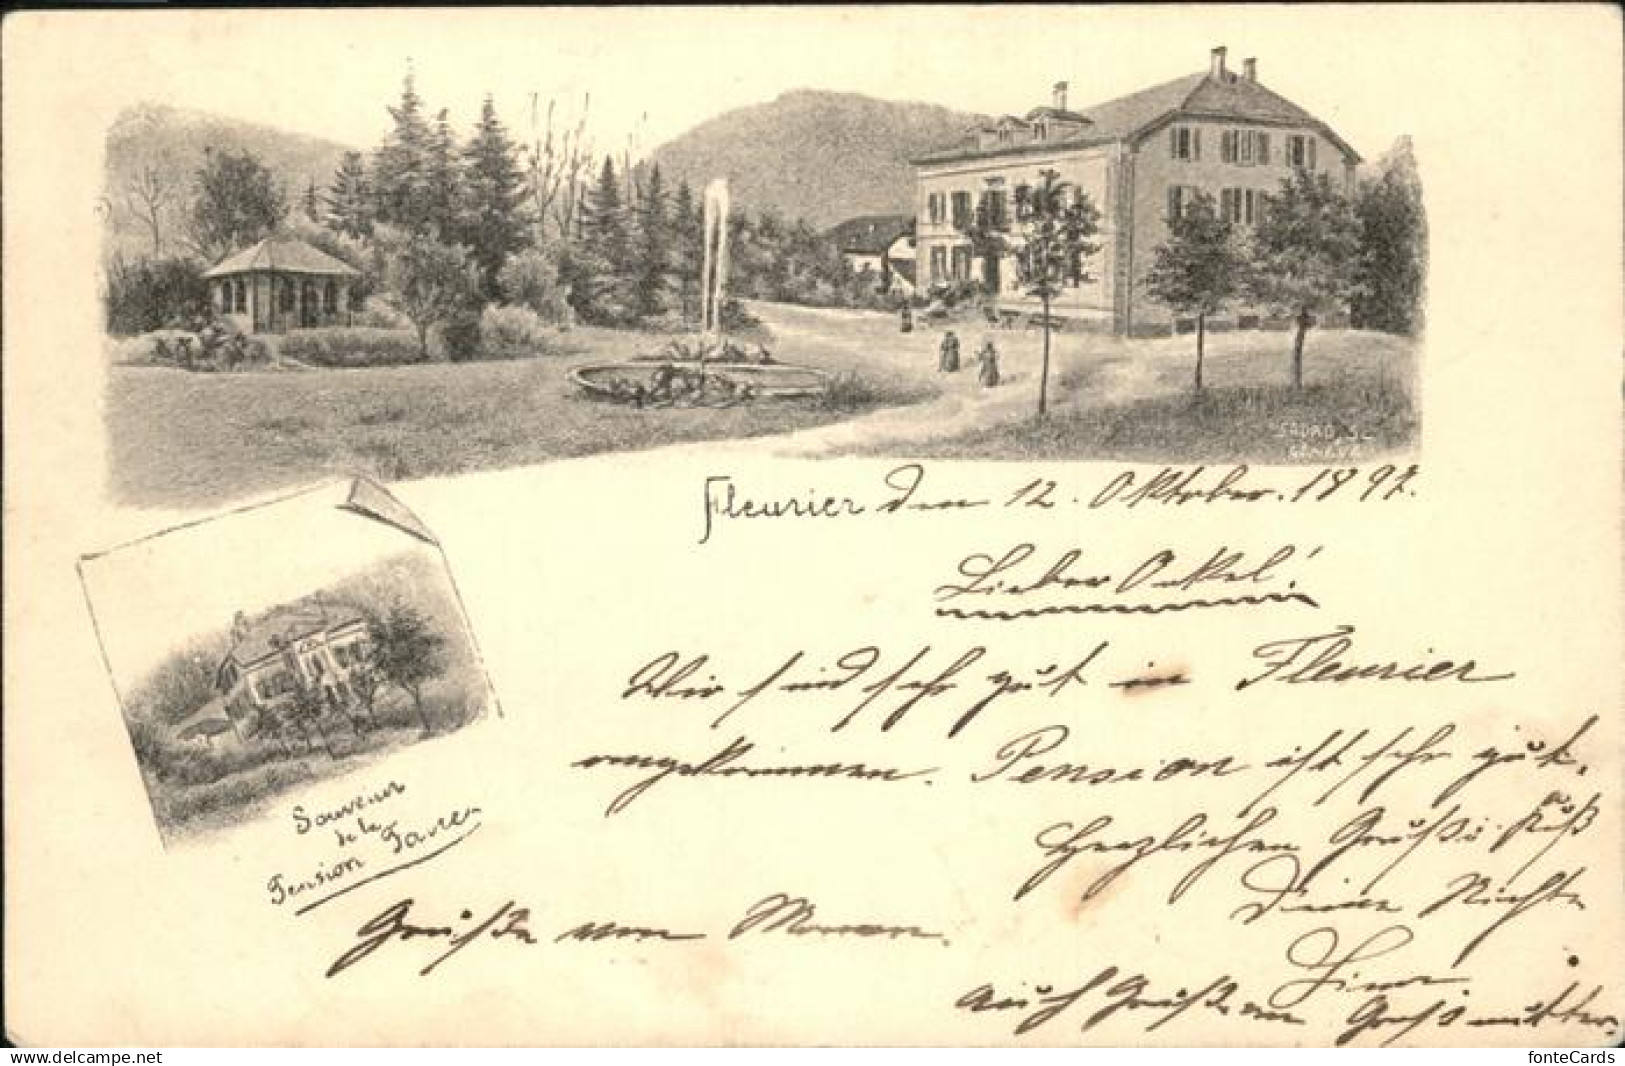 SADAG S.A.
GENÈVE
Fleurier den 12. Oktober. 1897.
Lieber Onkel!
Wir sind sehr gut in Fleurier
angekommen. Pension ist sehr gut.
Herzlichen Gruß u. Kuß
Deine Nichte
Souvenir
de la
Pension
Grüße von Maman.
auch Grüße an Großmutter.
www.fonteCards.ch
fonteCards